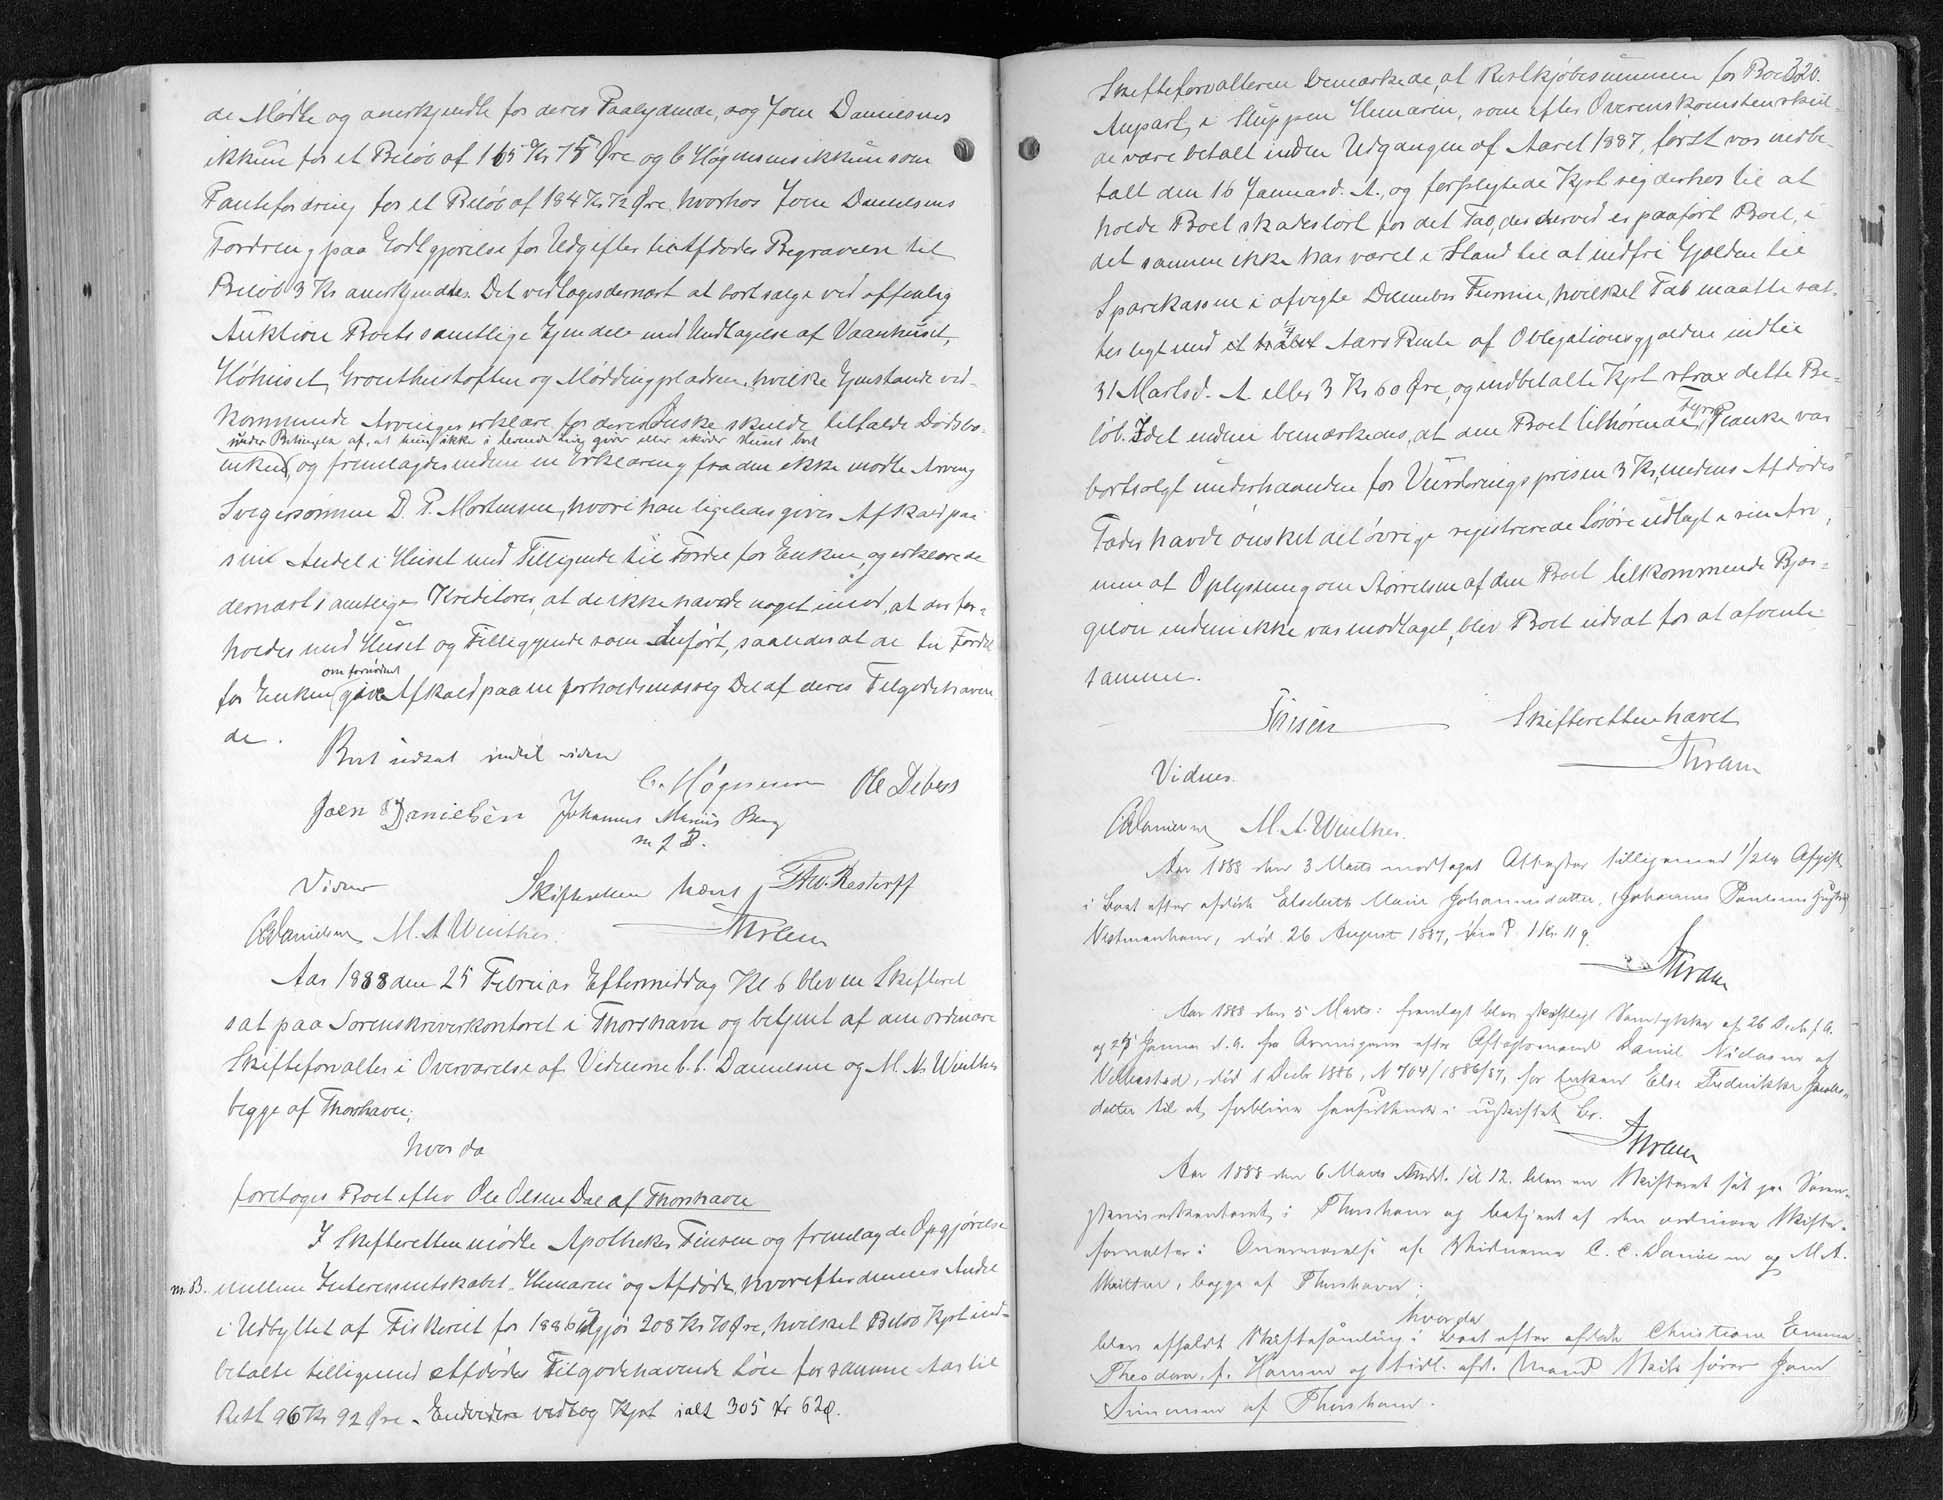 de Mødte og anerkjendte for deres Paalydende, dog Joen Danielsens
ikkun for et Beløb af 165 Kr 75 Øre og C. Høgnesens ikkun som
Pantefordring for et Beløb af 184 Kr 72 Øre, hvorhos Joen Danielsens
Fordring paa Godtgjørelse for Udgifter til Afdødes Begravelse til
Beløb 3 Kr anerkjendtes. Det vedtoges dernæst at bortsælge ved offentlig
Auktion Boets samtlige Ejendele med Undtagelse af Vaanhuset,
Høhuset, Grouthustoften og Møddingpladsen, hvilke Gjenstande ved-
kommende Arvinger erklære for deres Ønske skulde tilfalde Dødsbo-
under Betingelse af, at hun ikke i levende Live giver eller skiøder Huset bort
enken, og fremlagdes endnu en Erklæring fra den ikke mødte Arving
Svigersønnen D. P. Mortensen, hvori han ligeledes giver Afkald paa
sin Andel i Huset med Tilliggende til Fordel for Enken, og erklærede
dernæst samtlige Kreditorer, at de ikke havde noget imod, at der for-
holdes med Huset og Tilliggende som anført, saaledes at de til Fordel
om fornødent
for Enken give Afkald paa en forholdsmæssig Del af deres Tilgodehaven
de.
Boet udsat indtil videre
C. Høgnesen Ole Debes
Joen Danielsen Johannes Marius Berg
m. f. P.
Vidner Skifteretten hævet Thv. Restorff
CCDanielsen M. A Winther. Thram
Aar 1888 den 25 Februar Eftermiddag Kl 6 blev en Skifteret
sat paa Sorenskriverkontoret i Thorshavn og betjent af den ordinære
Skifteforvalter i Overværelse af Vidnerne C. C. Danielsen og M. A. Winther
begge af Thorshavn;
hvor da
foretoges Boet efter Ole Olsen Dal af Thorshavn
I Skifteretten mødte Apotheker Finsen og fremlagde Opgjørelse
m. B. mellem Interessentskabet "Himaren" og Afdøde, hvorefter dennes Andel
i Udbyttet af Fiskeriet for 1886 udgjør 208 Kr 70 Øre, hvilket Beløb Kpt ind-
betalte tilligemed Afdødes Tilgodehavende Løn for samme Aar til
Rest 96 Kr 92 Øre. Endvidere vedtog Kpt ialt 305 Kr 62 Ø.
320.
Skifteforvalteren bemærkede, at Restkjøbesummen for Boets
Anpart i Sluppen Himaren, som efter Overenskomsten skul-
de være betalt inden Udgangen af Aaret 1887, først var indbe-
talt den 16 Januar d. A., og forpligtede Kpt sig derhos til at
holde Boet skadesløst for det Tab, der derved er paaført Boet, i
det samme ikke har været i Stand til at indfri Gjælden til
Sparekassen i afvigte December Termin, hvilket Tab maatte sæt-
tes ligt med Aars Rente af Obligationsgjælden indtil
31 Marts d. A eller 3 Kr 60 Øre, og indbetalte Kpt strax dette Be-
løb. Idet endnu bemærkedes, at den Boet tilhørende Fyrre Planke var
bortsolgt underhaanden for Vurderingsprisen 3 Kr, medens Afdødes
Fader havde ønsket det øvrige registrerede Løsøre udlagt i sin Arv,
men at Oplysning om Størrelsen af den Boet tilkommende Bjær-
geløn endnu ikke var modtaget, blev Boet udsat for at afvente
samme.
Finsen Skifteretten hævet
Thram
Vidner.
CCDanielsen M. A. Winther.
Aar 1888 den 3 Marts modtaget Attester tilligemed 1/2 % Afgift
i Boet efter afdøde Elsebeth Marie Johannesdatter, Johannes Poulsens Hustru
Vestmanhavn, død 26 August 1887, 1 Kr. 11 Ø.
Thram
Aar 1888 den 5 Marts: fremlagt blev skriftligt Samtykke af 26 Decbr f. A.
og 25 Januar d. A. fra Arvingerne efter Aftægtsmand Daniel Niclasen af
Velbestad, død 1 Decbr 1886, N 704/1886/87, for Enken Else Frederikke Jacobs-
datter til at forblive hensiddende i uskiftet Bo.
Thram
Aar 1888 den 6 Marts Middt. Kl 12. blev en Skifteret sat paa Soren-
skriverkontoret i Thorshavn og betjent af den ordinære Skifte-
forvalter i Overværelse af Vidnerne C. C. Danielsen og M. A.
Winther, begge af Thorshavn;
hvor da
blev afholdt Skiftesamling i Boet efter afdøde Christiane Emma
Theodora, f. Hansen og tidl. afd. Mand Skibsfører Joen
Simonsen af Thorshavn.